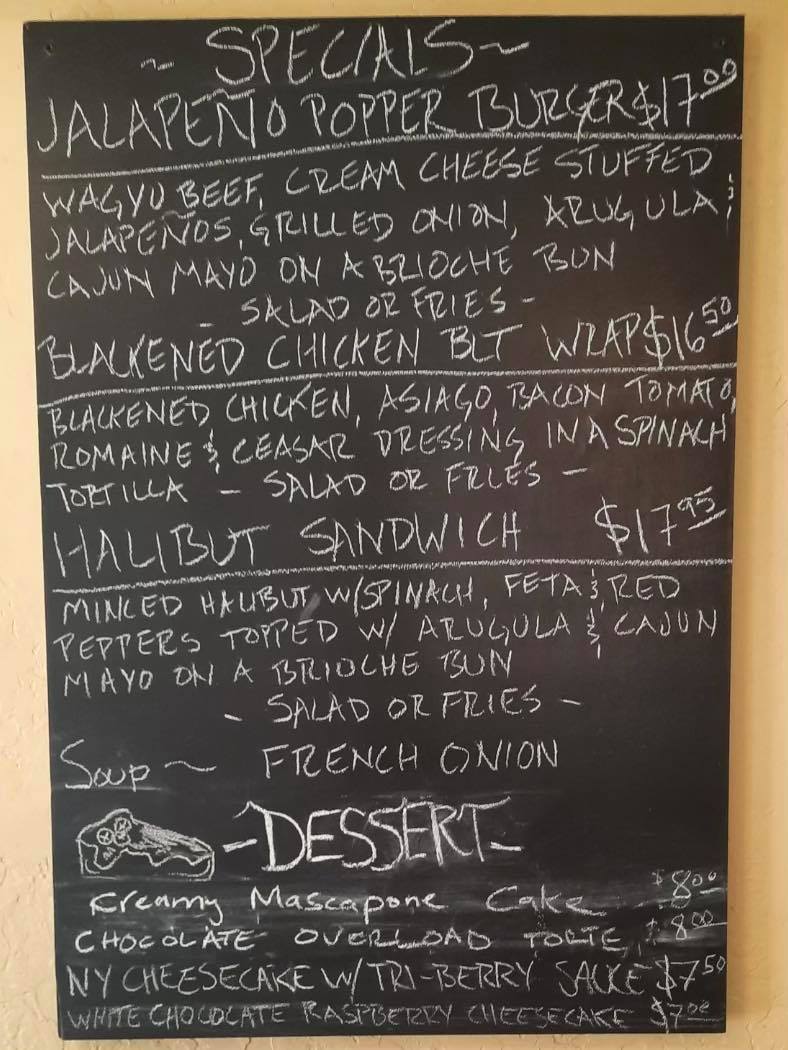 ~ SPECIALS ~
JALAPEÑO POPPER BURGER $17.00
WAGYU BEEF, CREAM CHEESE STUFFED
JALAPEÑOS, GRILLED ONION, ARUGULA &
CAJUN MAYO ON A BRIOCHE BUN
- SALAD OR FRIES -
BLACKENED CHICKEN BLT WRAP $16.50
BLACKENED CHICKEN, ASIAGO, BACON TOMATO,
ROMAINE & CEASAR DRESSING IN A SPINACH
TORTILLA - SALAD OR FRIES -
HALIBUT SANDWICH $17.95
MINCED HALIBUT W/SPINACH, FETA & RED
PEPPERS TOPPED W/ ARUGULA & CAJUN
MAYO ON A BRIOCHE BUN
- SALAD OR FRIES -
Soup ~ FRENCH ONION
-DESSERT-
Creamy Mascapone Cake $8.00
CHOCOLATE OVERLOAD TORTE $8.00
NY CHEESECAKE W/ TRI-BERRY SAUCE $7.50
WHITE CHOCOLATE RASPBERRY CHEESECAKE $7.00